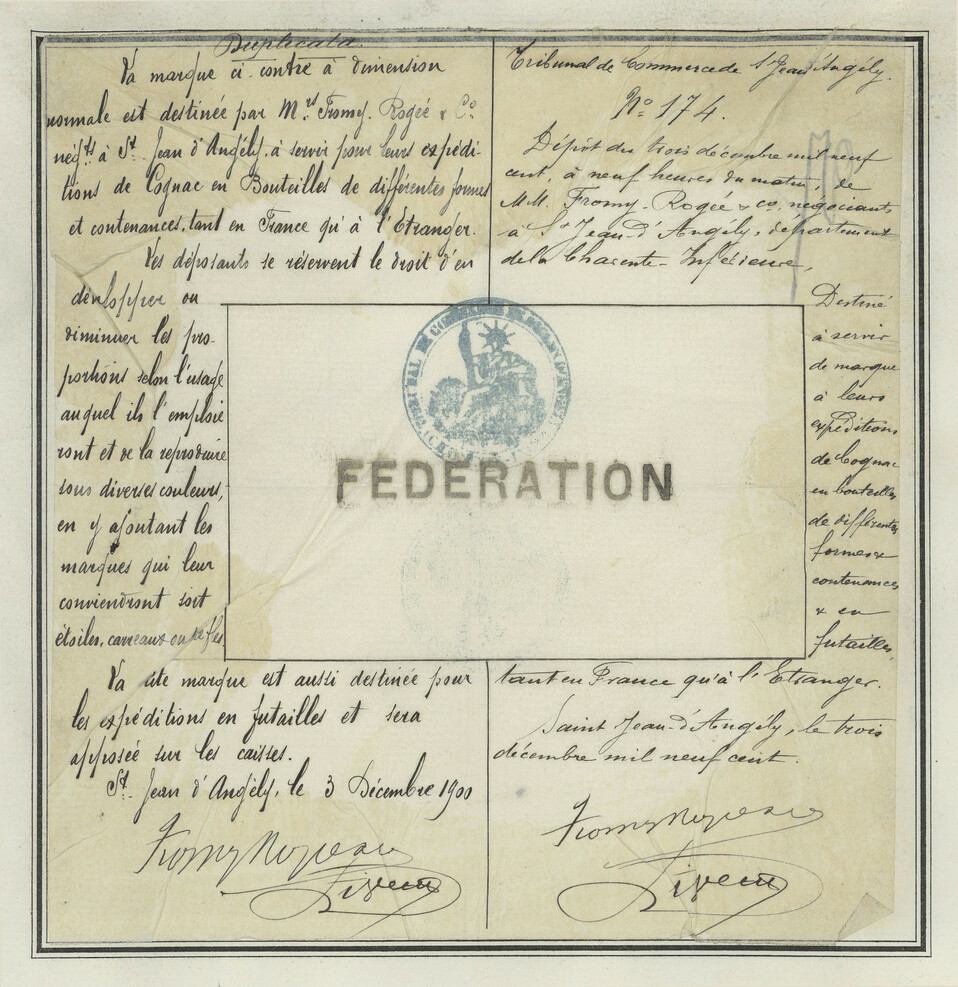 Duplicata
La marque ci contre à dimension
normale est destinée par M.rs Fromy. Rogée & Co.
négts à St. Jean d'Angély, à servir pour leurs expédi-
tions de Cognac en Bouteilles de différentes formes
et contenances, tant en France qu'à l'Etranger.
Les déposants se réservent le droit d'en
développer ou
diminuer les pro-
portions selon l'usage
auquel ils l'emploie
ront et de la reproduire
sous diverses couleurs,
en y ajoutant les
marques qui leur
conviendront soit
étoiles, carreaux ou
La dite marque est aussi destinée pour
les expéditions en futailles et sera
apposée sur les caisses.
St. Jean d'Angély, le 3 Décembre 1900
Fromy Rogée & Co
Tribunal de Commerce de St Jean d'Angély.
No. 174.
Dépôt du trois décembre mil neuf
cent, à neuf heures du matin, de
M.M. Fromy. Rogée & co. négociants
à St Jean-d'Angély, département
de la Charente-Inférieure,
Destiné
à servir
de marque
à leurs
expéditions
de Cognac
en bouteilles
de différentes
formes &
contenances
& en
futailles,
tant en France qu'à l'Etranger.
Saint Jean-d'Angély, le trois
décembre mil neuf cent.
Fromy Rogée & Co
FEDERATION